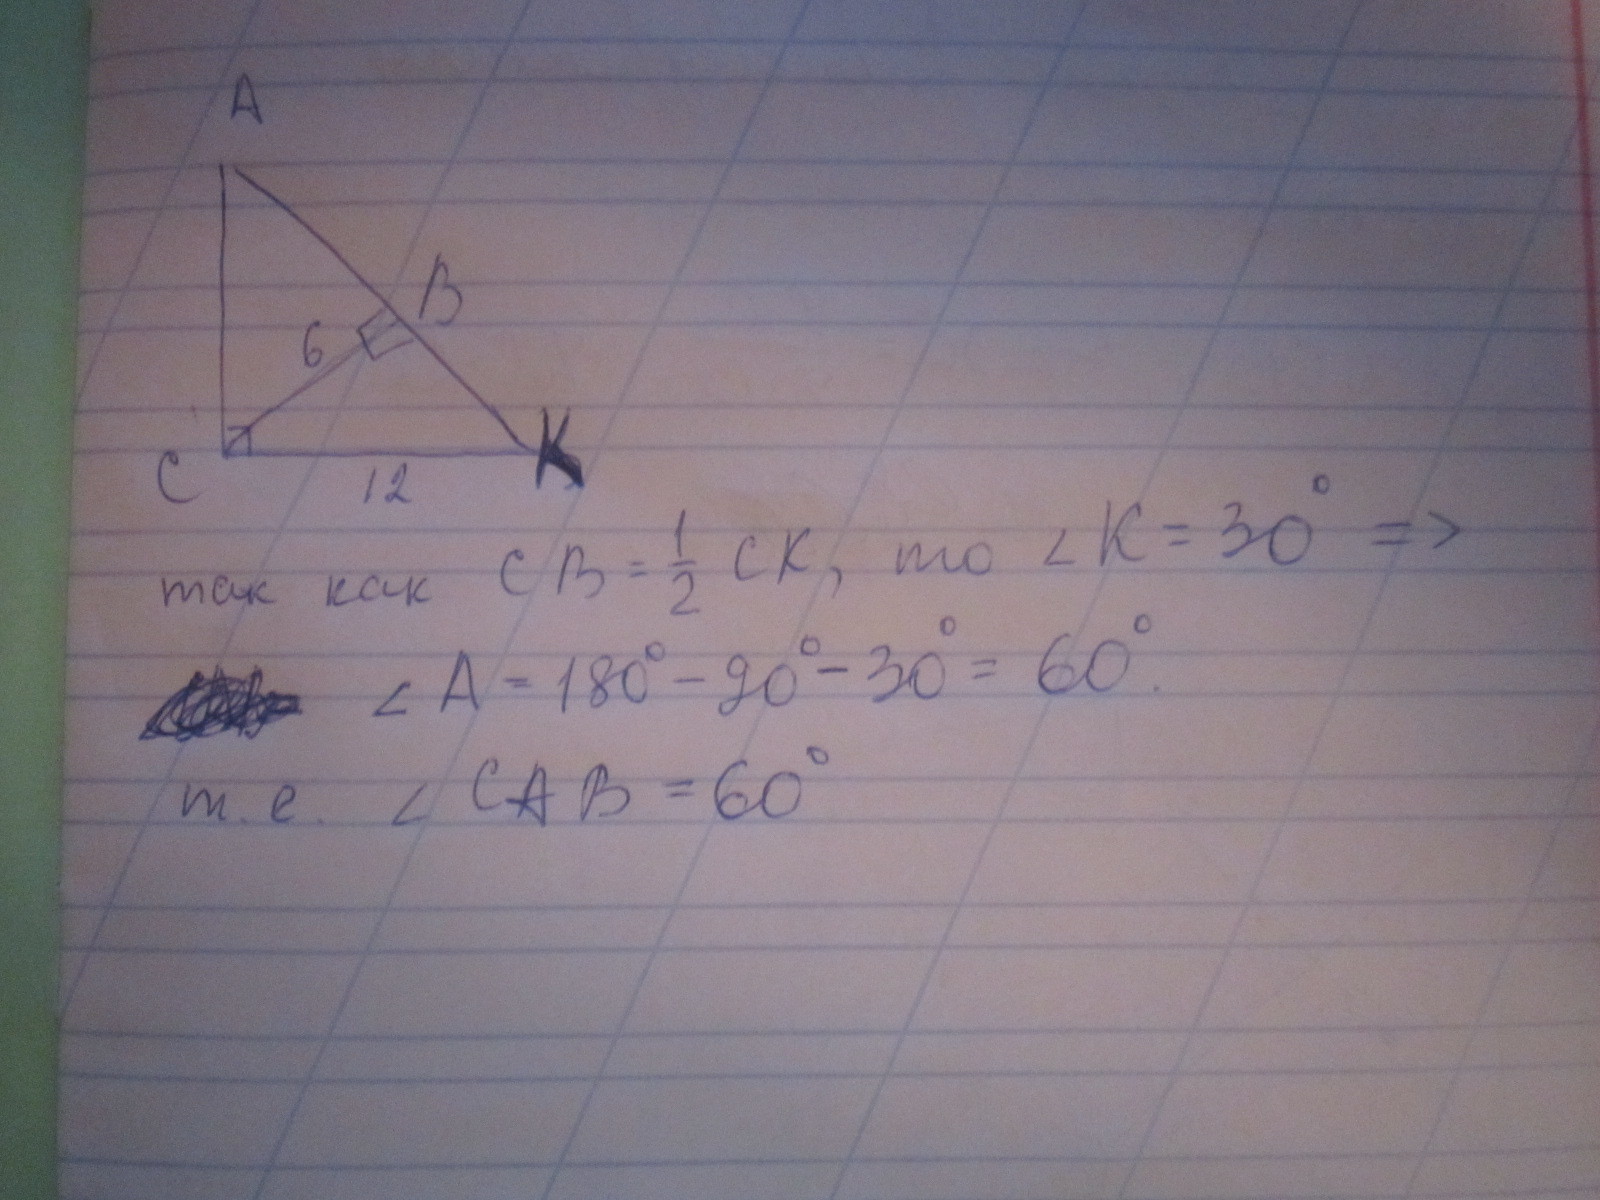 A
B
6
C
12
K
так как CB = 1/2 CK, то ∠K = 30° =>
∠A = 180° - 90° - 30° = 60°.
т.е. ∠CAB = 60°